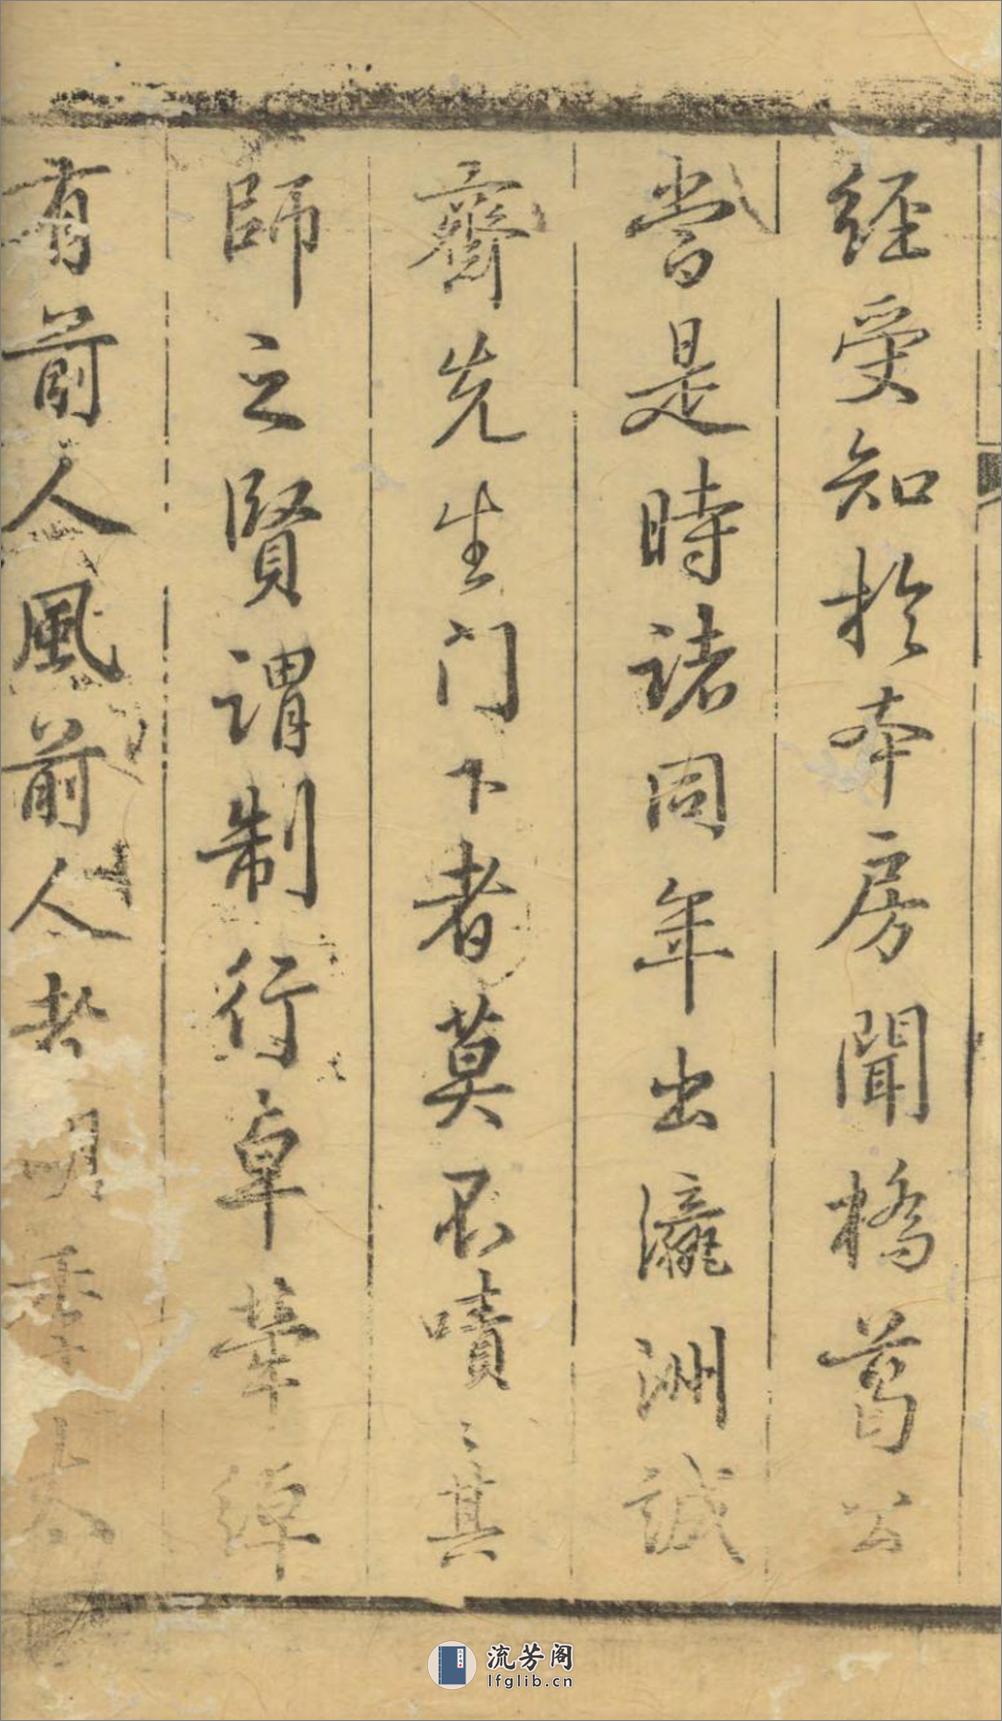 經受知於本房聞橋葛公
當是時諸同年出瀛洲誠
齋先生門下者莫不嘖〻其
師之賢謂制行卓犖綽
有前人風前人者明季太
流芳阁
lfglib.cn